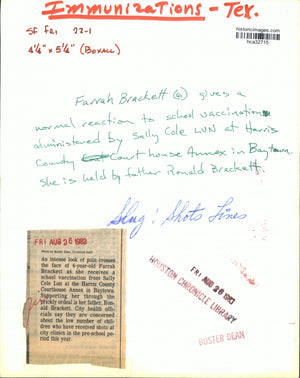 Immunizations - Tex.
historicimages.com
hca32715
SF Fri 22-1
4 1/4" x 5 1/4" (Boxall)
Farrah Brackett 6 gives a
normal reaction to school vaccinations
administered by Sally Cole LVN at Harris
County Court house Annex in Baytown
She is held by father Ronald Brackett.
Slug: Shots Lines
FRI AUG 26 1983
An intense look of pain crosses
the face of 6-year-old Farrah
Brackett as she receives a
school vaccination from Sally
Cole Lun at the Harris County
Courthouse Annex in Baytown.
Supporting her through the
prickly ordeal is her father, Ron-
ald Brackett. City health offi-
cials say they are concerned
about the low number of chil-
dren who have received shots at
city clinics in the pre-school pe-
riod this year.
FRI AUG 26 1983
HOUSTON CHRONICLE LIBRARY
BUSTER DEAN